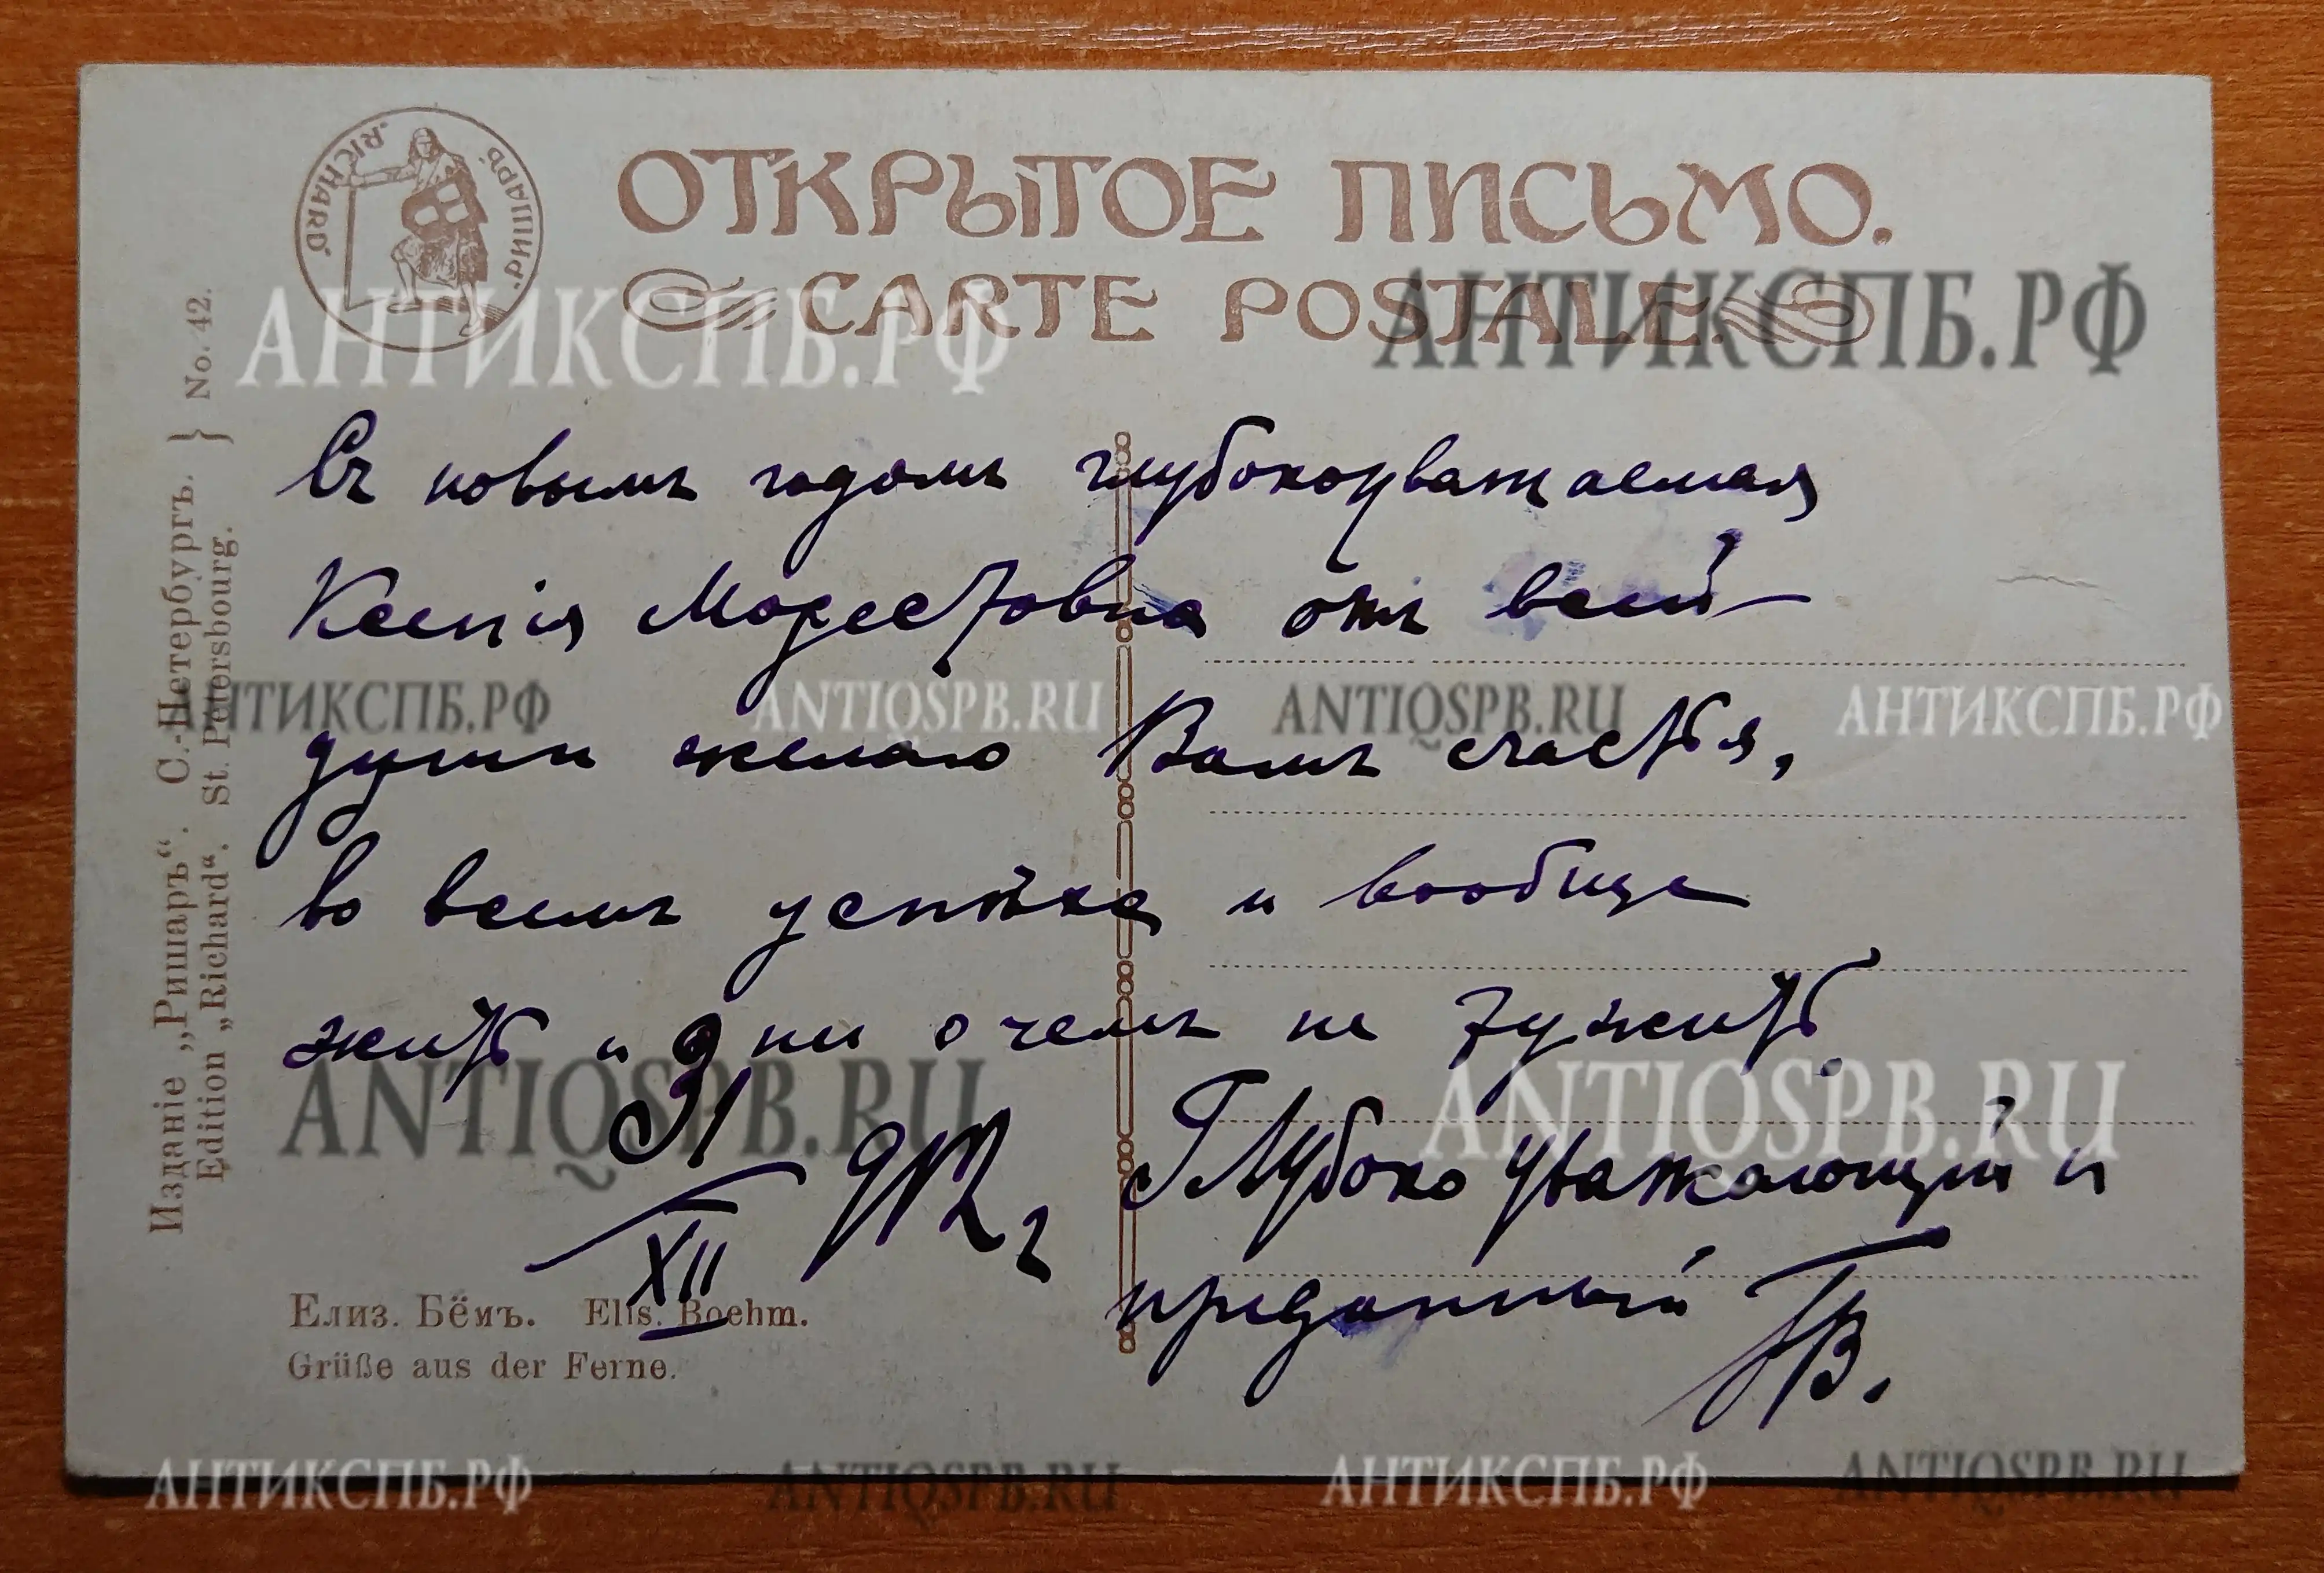 "RICHARD" "РИШАРЪ"
ОТКРЫТОЕ ПИСЬМО.
CARTE POSTALE.
АНТИКСПБ.РФ
АНТИКСПБ.РФ
Съ новымъ годомъ глубокоуважаемая
Ксенія Модестовна отъ всей
АНТИКСПБ.РФ ANTIQSPB.RU ANTIQSPB.RU АНТИКСПБ.РФ
души желаю Вамъ счастья,
во всемъ успѣха и вообще
жить и ни о чемъ не тужить.
ANTIQSPB.RU ANTIQSPB.RU
31
XII
912 г
Глубоко уважающій и
преданный ГВ.
Елиз. Бёмъ. Elis. Boehm.
Grüße aus der Ferne.
Изданіе „Ришаръ“. С.-Петербургъ.
Edition „Richard“. St. Petersbourg.
} No. 42.
АНТИКСПБ.РФ ANTIQSPB.RU АНТИКСПБ.РФ ANTIQSPB.RU